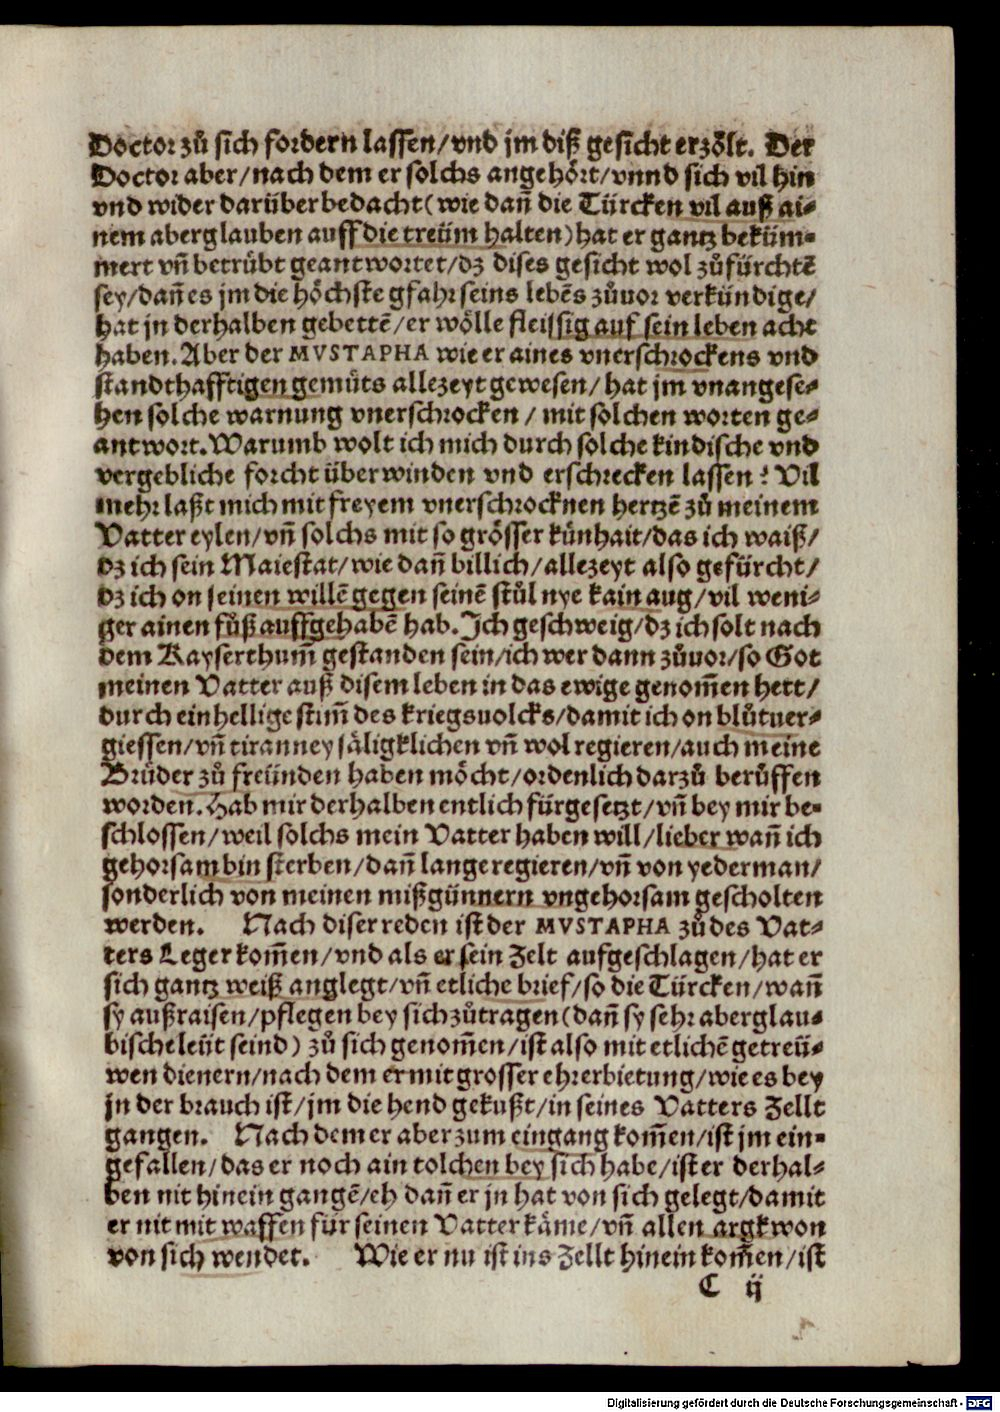 Doctor zů sich fordern lassen/vnd jm diß gesicht erzölt. Der
Doctor aber/nach dem er solchs angehört/vnnd sich vil hin
vnd wider darüber bedacht(wie dañ die Türcken vil auß ai-
nem aberglauben auff die treüm halten)hat er gantz beküm-
mert vñ betrübt geantwortet/dz dises gesicht wol zůfürchtē
sey/dañ es jm die höchste gfahr seins lebēs zůuor verkündige/
hat jn derhalben gebettē/er wölle fleissig auf sein leben acht
haben. Aber der MVSTAPHA wie er aines vnerschrockens vnd
standthafftigen gemüts allezeyt gewesen/hat jm vnangese-
hen solche warnung vnerschrocken/mit solchen worten ge-
antwort. Warumb wolt ich mich durch solche kindische vnd
vergebliche forcht überwinden vnd erschrecken lassen? Vil
mehr laßt mich mit freyem vnerschrocknen hertzē zů meinem
Vatter eylen/vñ solchs mit so grösser künhait/das ich waiß/
dz ich sein Maiestat/wie dañ billich/allezeyt also gefürcht/
dz ich on seinen willē gegen seinē stůl nye kain aug/vil weni-
ger ainen fůß auffgehabē hab. Ich geschweig/dz ich solt nach
dem Kayserthum̃ gestanden sein/ich wer dann zůuor/so Got
meinen Vatter auß disem leben in das ewige genom̃en hett/
durch einhellige stim̃ des kriegsuolcks/damit ich on blůtuer-
giessen/vñ tiranney säligklichen vñ wol regieren/auch meine
Brüder zů freünden haben möcht/ordenlich darzů berůffen
worden. Hab mir derhalben entlich fürgesetzt/vñ bey mir be-
schlossen/weil solchs mein Vatter haben will/lieber wañ ich
gehorsam bin sterben/dañ lange regieren/vñ von yederman/
sonderlich von meinen mißgünnern vngehorsam gescholten
werden. Nach diser reden ist der MVSTAPHA zů des Vat-
ters Leger kom̃en/vnd als er sein Zelt aufgeschlagen/hat er
sich gantz weiß anglegt/vñ etliche brief/so die Türcken/wañ
sy außraisen/pflegen bey sich zůtragen(dañ sy sehr aberglau-
bische leüt seind) zů sich genom̃en/ist also mit etlichē getreü-
wen dienern/nach dem er mit grosser ehrerbietung/wie es bey
jn der brauch ist/jm die hend gekußt/in seines Vatters Zellt
gangen. Nach dem er aber zum eingang kom̃en/ist jm ein-
gefallen/das er noch ain tolchen bey sich habe/ist er derhal-
ben nit hinein gangē/eh dañ er jn hat von sich gelegt/damit
er nit mit waffen für seinen Vatter käme/vñ allen argkwon
von sich wendet. Wie er nu ist ins Zellt hinein kom̃en/ist
C ij
Digitalisierung gefördert durch die Deutsche Forschungsgemeinschaft - DFG